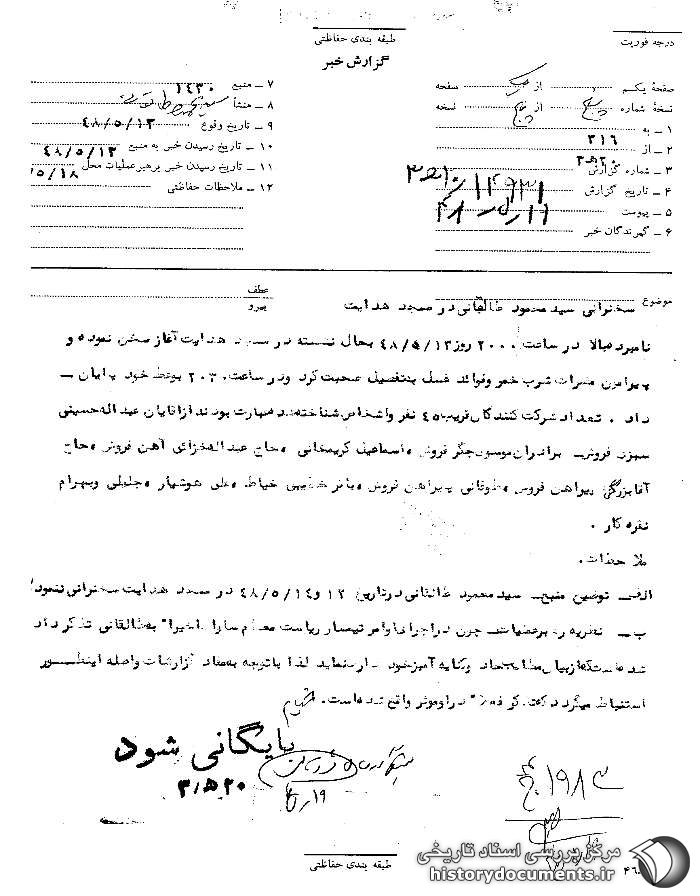 طبقه بندی حفاظتی
درجه فوریت
گزارش خبر
صفحه یکم از صفحه
نسخه شماره از نسخه
۱ ـ به
۲ ـ از ۳۱۶
۳ ـ شماره گزارش
۴ ـ تاریخ گزارش
۵ ـ پیوست
۶ ـ گیرندگان خبر
۷ ـ منبع ۱۴۳۰
۸ ـ منشأ سید محمود طالقانی
۹ ـ تاریخ وقوع ۴۸/۵/۱۳
۱۰ ـ تاریخ رسیدن خبر به منبع ۴۸/۵/۱۳
۱۱ ـ تاریخ رسیدن خبر برهبر عملیات محل ۵/۱۸
۱۲ ـ ملاحظات حفاظتی
عطف
پیرو
موضوع سخنرانی سید محمود طالقانی در مسجد هدایت
نامبرده بالا در ساعت ۲۰۰۰ روز ۴۸/۵/۱۳ بحال نشسته در مسجد هدایت آغاز سخن نموده و
پیرامون مضرات شرب خمر و فوائد غسل بتفصیل صحبت کرد و در ساعت ۲۰۳۰ بوعظ خود پایان ـ
داد . تعداد شرکت کنندگان قریب ۴۵ نفر و اشخاص شناخته شده عبارت بودند از آقایان عبداله حسینی
سبزی فروش ـ برادران موسوی جگر فروش ، اسماعیل کریمخانی ، حاج عبداله آهن فروش ، حاج
آقا بزرگی پیراهن فروش ، طوقانی پیراهن فروش ، باقر خیاط ، علی هوشیار ، جلیلی و بهرام
نقره کار .
ملاحظات .
الف ـ توضیح منبع ـ سید محمود طالقانی در تاریخ ۱۲ و ۴۸/۵/۱۴ در مسجد هدایت سخنرانی ننمود
ب ـ نظریه رهبر عملیات ـ چون در اجرای اوامر تیمسار ریاست معظم ساواک اخیرا" به طالقانی تذکر داد
شده است که از بیان مطالب حاد و کنایه آمیز خود داری نماید لذا با توجه به مفاد گزارشات واصله اینطور
استنباط میگردد که تذکر فوق در او موثر واقع شده است .
بایگانی شود
۳/۵۲۰
۱۹
۱۹۸۳
طبقه بندی حفاظتی
مرکز بررسی اسناد تاریخی
historydocuments.ir